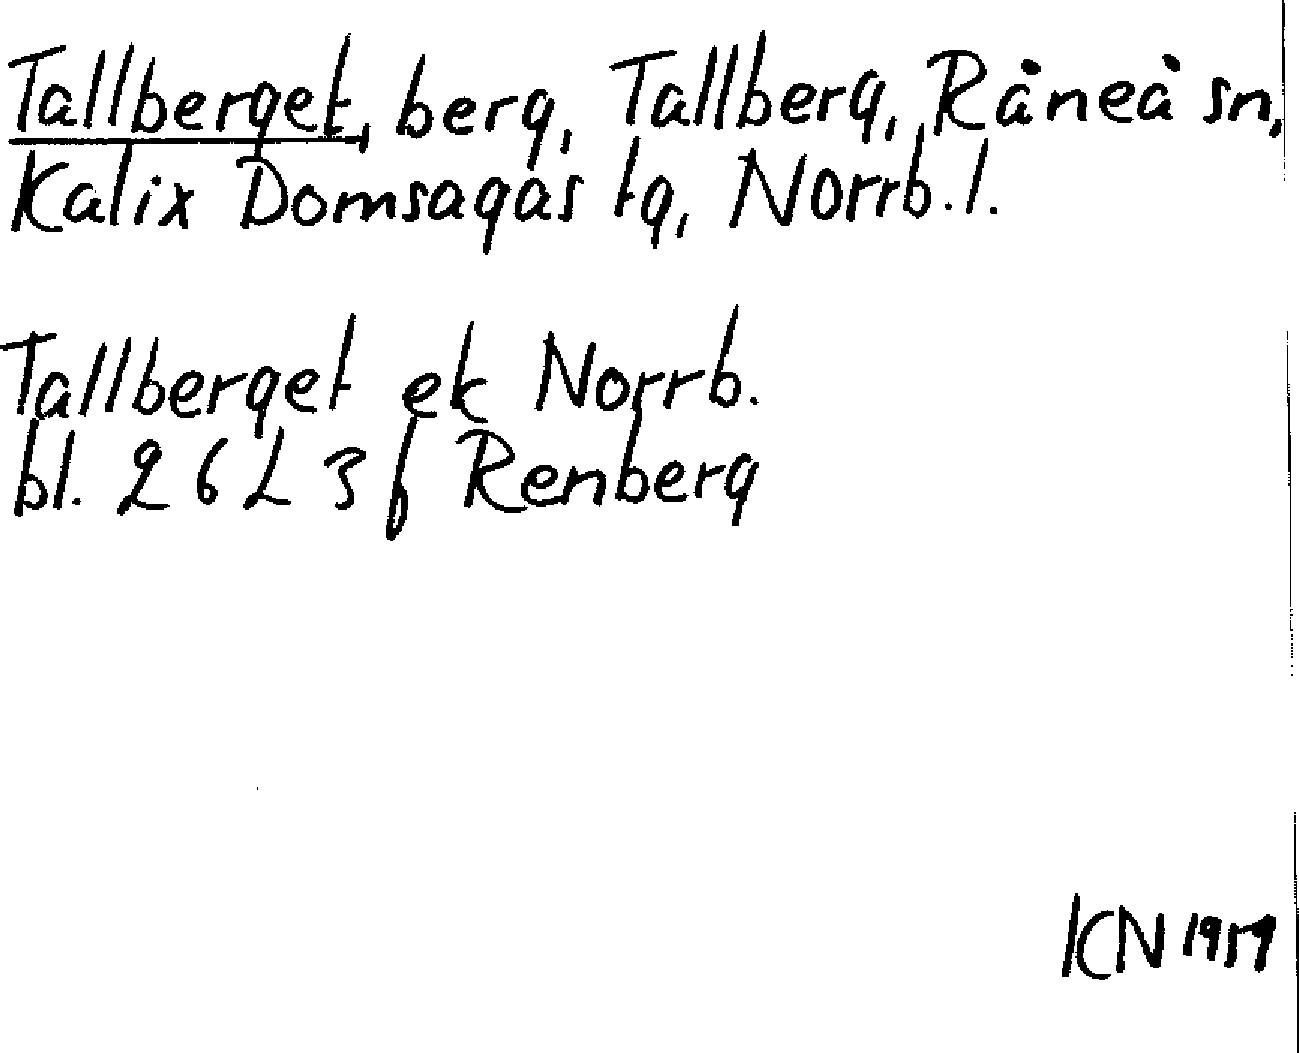 Tallberget, berg, Tallberg, Råneå sn,
Kalix Domsagas tg, Norrb. l.
Tallberget ek Norrb.
bl. 26 L 3 f Renberg
KN 1959